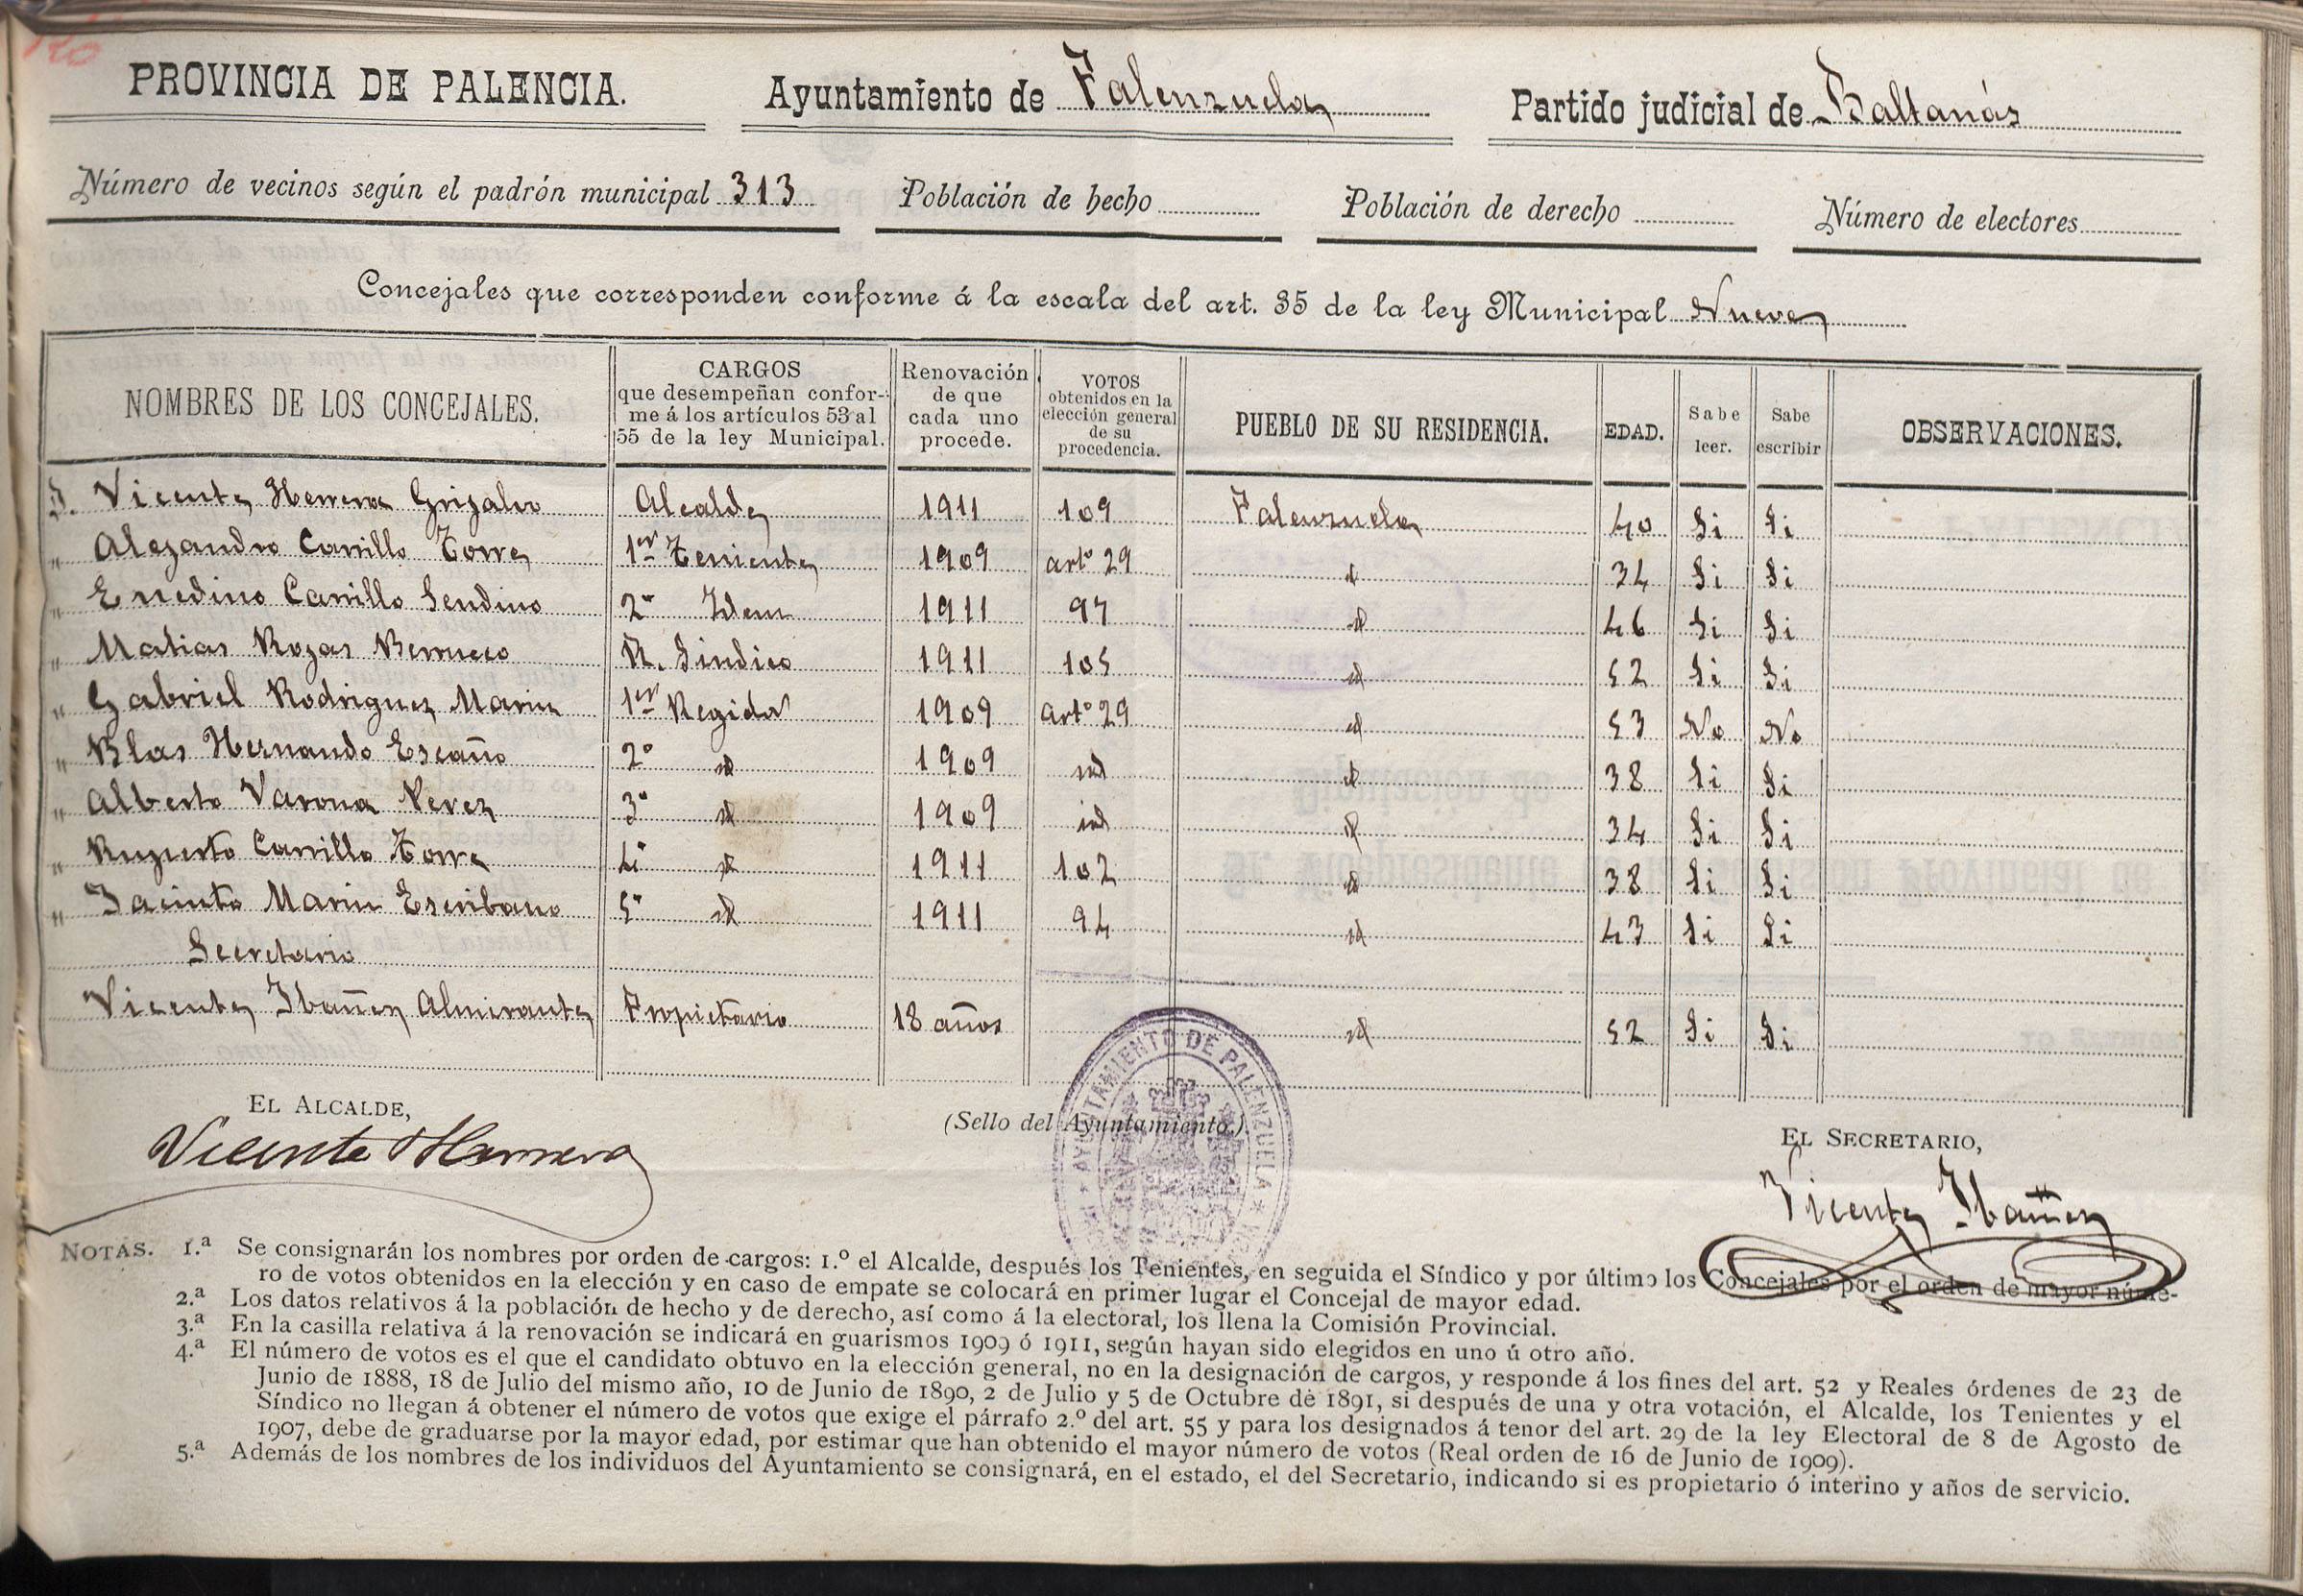 PROVINCIA DE PALENCIA. Ayuntamiento de Palenzuela Partido judicial de Baltanás
Número de vecinos según el padrón municipal 313 Población de hecho Población de derecho Número de electores
Concejales que corresponden conforme á la escala del art. 35 de la ley Municipal Nueve
NOMBRES DE LOS CONCEJALES. CARGOS que desempeñan conforme á los artículos 53 al 55 de la ley Municipal. Renovación de que cada uno procede. VOTOS obtenidos en la elección general de su procedencia. PUEBLO DE SU RESIDENCIA. EDAD. Sabe leer. Sabe escribir OBSERVACIONES.
D. Vicente Herrera Grijalvo Alcalde 1911 109 Palenzuela 40 Si Si
" Alejandro Carrillo Torre 1er Teniente 1909 artº 29 id 34 Si Si
" Enedino Carrillo Sendino 2º Idem 1911 97 id 46 Si Si
" Matias Rojas Berrueco R. Sindico 1911 105 id 52 Si Si
" Gabriel Rodriguez Marin 1er Regidor 1909 artº 29 id 53 No No
" Blas Hernando Escaño 2º id 1909 id id 38 Si Si
" Alberto Varona Perez 3º id 1909 id id 34 Si Si
" Ruperto Carrillo Torre 4º id 1911 102 id 38 Si Si
" Jacinto Marin Escribano 5º id 1911 94 id 43 Si Si
Secretario
Vicente Ibañez Almirante Propietario 18 años id 52 Si Si
EL ALCALDE,
(Sello del Ayuntamiento.)
AYUNTAMIENTO DE PALENZUELA
EL SECRETARIO,
Vicente Herrera
Vicente Ibañez
NOTAS. 1.ª Se consignarán los nombres por orden de cargos: 1.º el Alcalde, después los Tenientes, en seguida el Síndico y por último los Concejales por el orden de mayor núme-
ro de votos obtenidos en la elección y en caso de empate se colocará en primer lugar el Concejal de mayor edad.
2.ª Los datos relativos á la población de hecho y de derecho, así como á la electoral, los llena la Comisión Provincial.
3.ª En la casilla relativa á la renovación se indicará en guarismos 1909 ó 1911, según hayan sido elegidos en uno ú otro año.
4.ª El número de votos es el que el candidato obtuvo en la elección general, no en la designación de cargos, y responde á los fines del art. 52 y Reales órdenes de 23 de
Junio de 1888, 18 de Julio del mismo año, 10 de Junio de 1890, 2 de Julio y 5 de Octubre de 1891, si después de una y otra votación, el Alcalde, los Tenientes y el
Síndico no llegan á obtener el número de votos que exige el párrafo 2.º del art. 55 y para los designados á tenor del art. 29 de la ley Electoral de 8 de Agosto de
1907, debe de graduarse por la mayor edad, por estimar que han obtenido el mayor número de votos (Real orden de 16 de Junio de 1909).
5.ª Además de los nombres de los individuos del Ayuntamiento se consignará, en el estado, el del Secretario, indicando si es propietario ó interino y años de servicio.